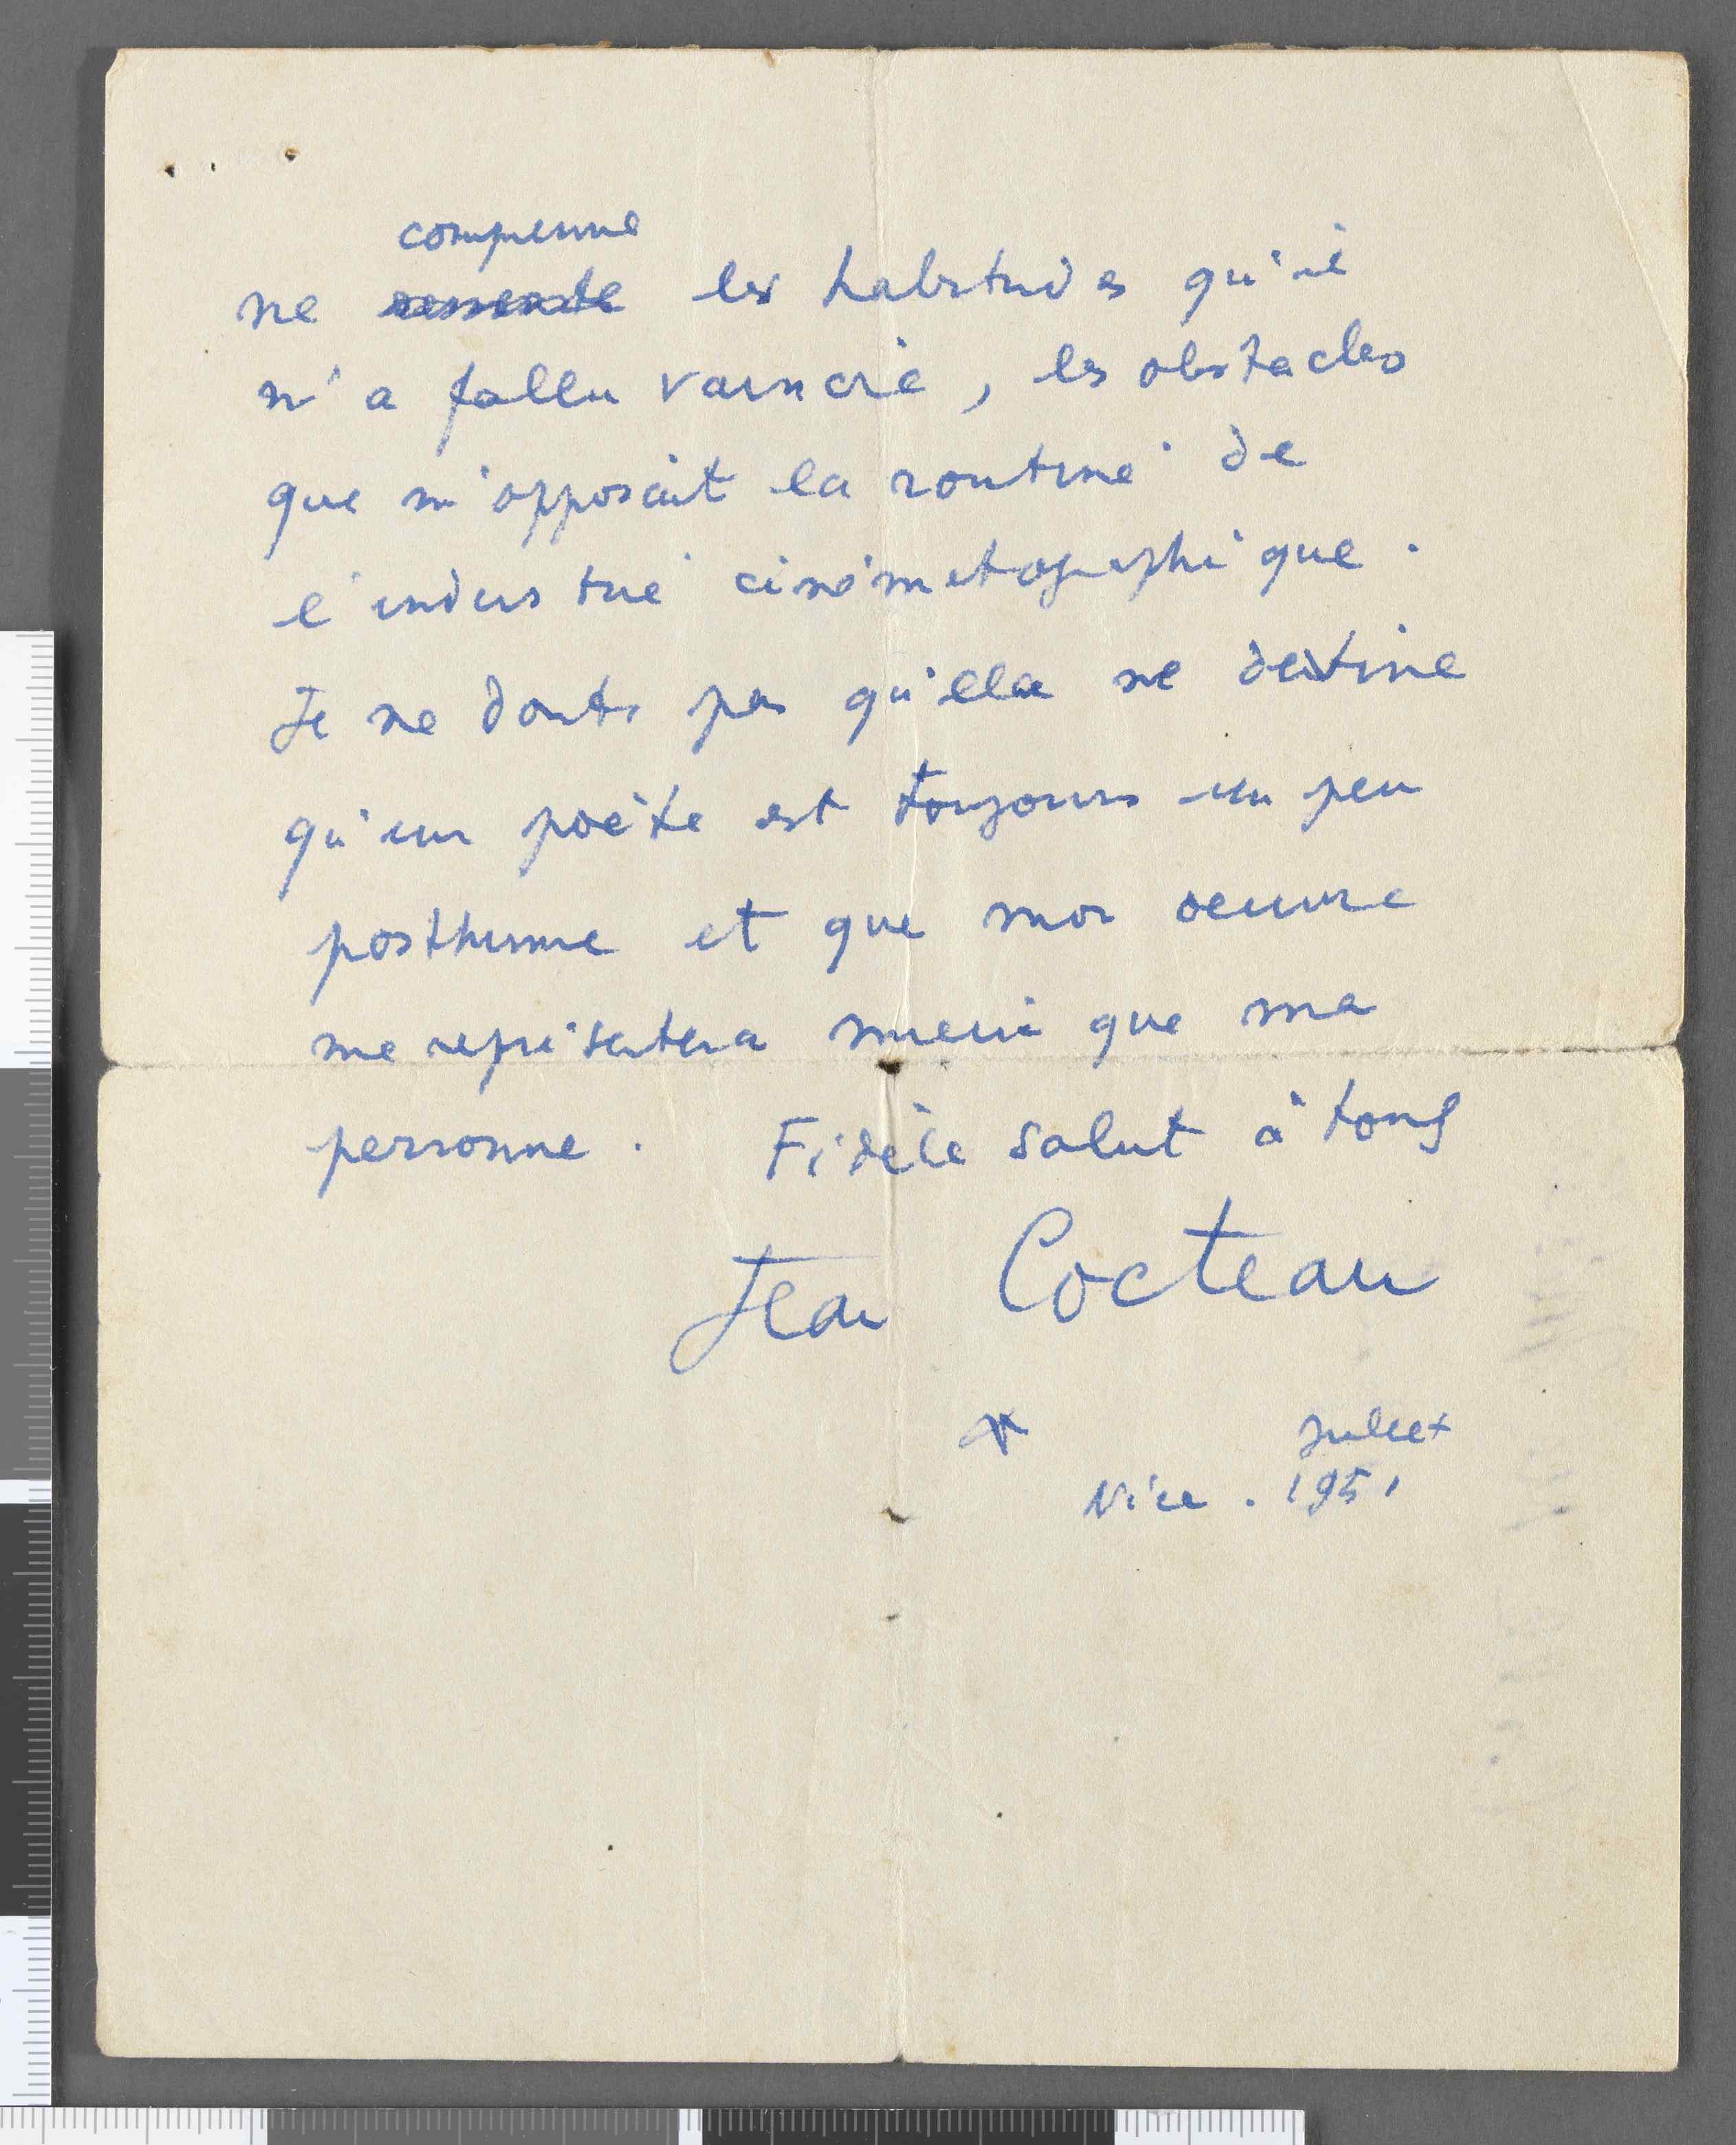 comprenne
ne ressente les habitudes qu'il
m'a fallu vaincre, les obstacles
que m'opposait la routine de
l'industrie cinématographique.
Je ne doute pas qu'elle ne devine
qu'un poète est toujours un peu
posthume et que mon oeuvre
me représentera mieux que ma
personne. Fidèle salut à tous
Jean Cocteau
*
juillet
Nice. 1951